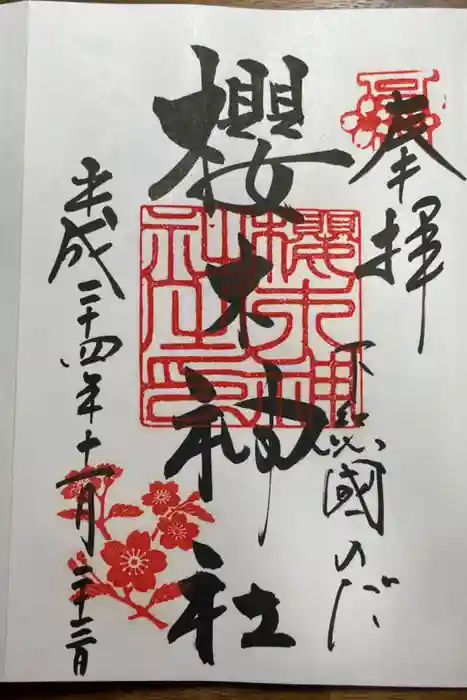 奉拝
下総國のだ
櫻木神社
櫻木神社之印
平成二十四年十一月二十三日